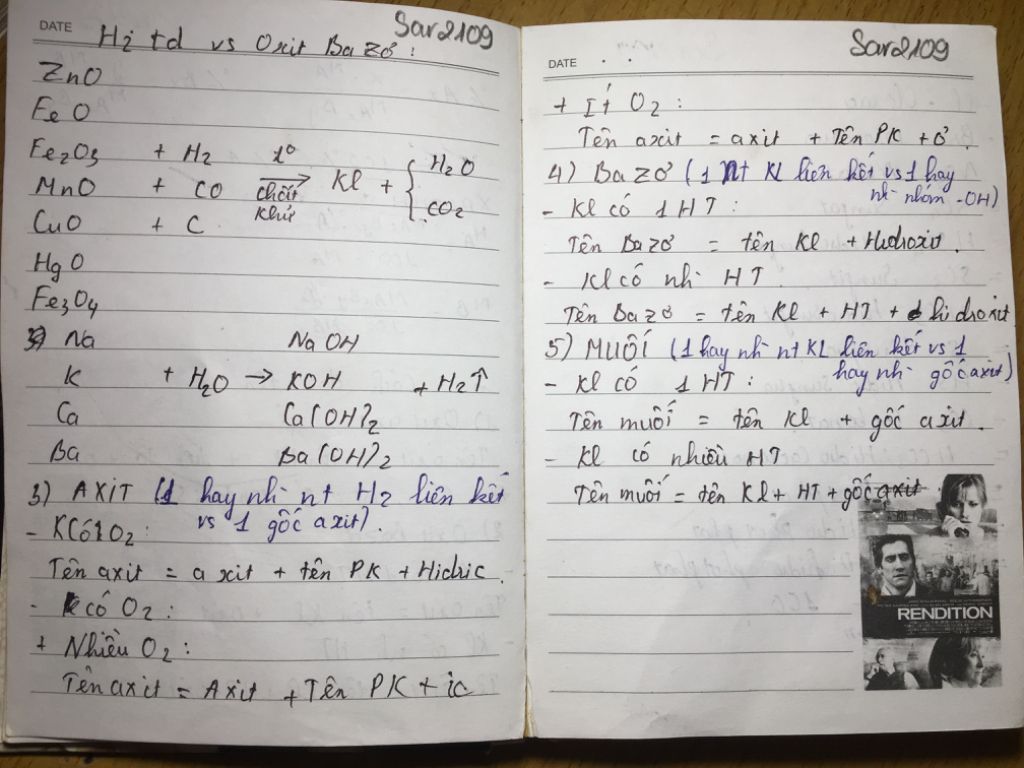 DATE
Sar2109
H2 td vs Oxit Bazơ :
ZnO
FeO
Fe2O3 + H2 t° H2O
MnO + CO → Kl + {
CuO + C chất khử CO2
HgO
Fe3O4
Na NaOH
K + H2O → KOH + H2↑
Ca Ca(OH)2
Ba Ba(OH)2
3) AXIT (1 hay nh` nt H2 liên kết
vs 1 gốc axit).
- K có O2 :
Tên axit = axit + tên PK + Hidric.
- có O2 :
+ Nhiều O2 :
Tên axit = Axit + Tên PK + ic
Sar2109
DATE . .
+ Ít O2 :
Tên axit = axit + Tên PK + ơ.
4) Bazơ (1 nt KL liên kết vs 1 hay
nh` nhóm -OH)
- Kl có 1 HT :
Tên Bazơ = tên Kl + Hidroxit.
- Kl có nh` HT.
Tên Bazơ = tên Kl + HT + hidroxit
5) MUỐI (1 hay nh` nt KL liên kết vs 1
hay nh` gốc axit)
- Kl có 1 HT :
Tên muối = tên Kl + gốc axit.
- Kl có nhiều HT
Tên muối = tên Kl + HT + gốc axit
RENDITION